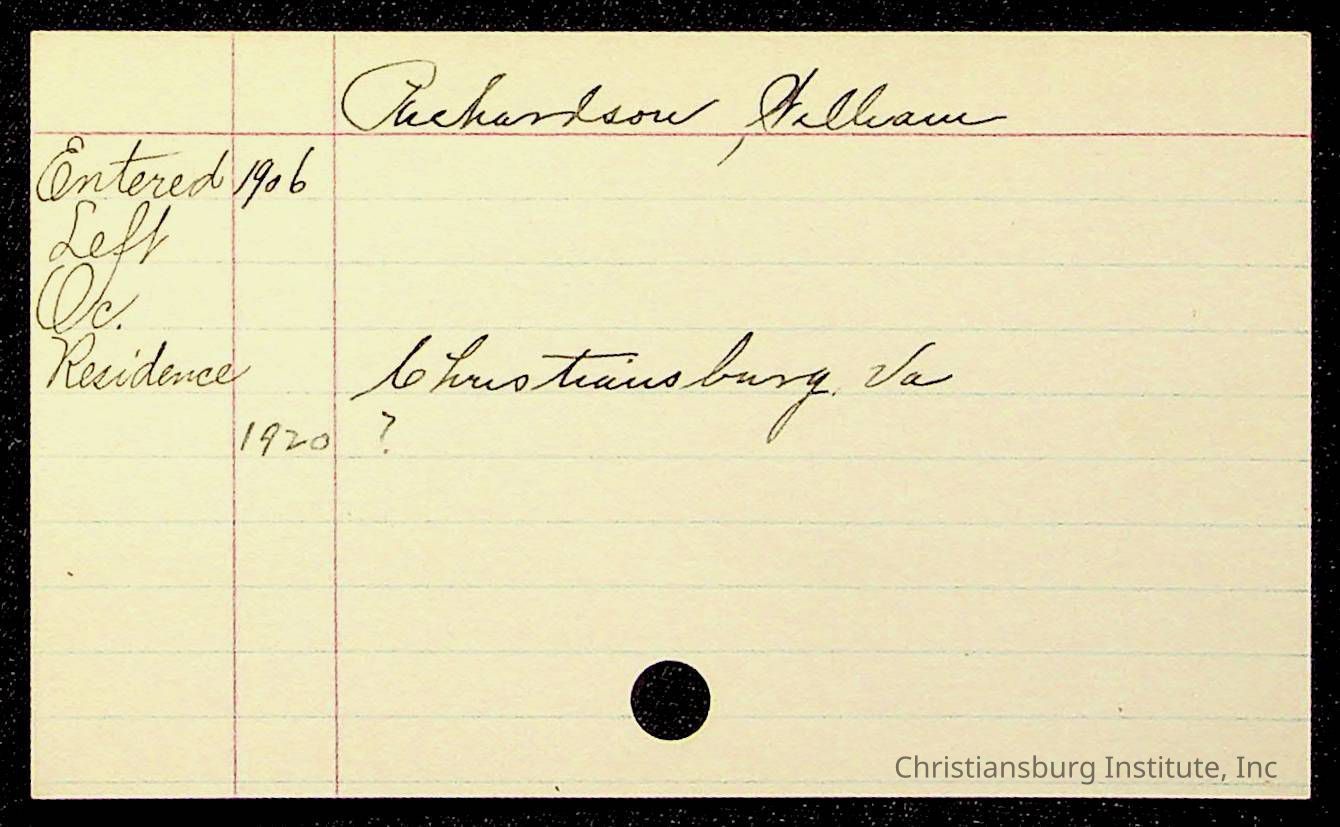 Richardson, William
Entered 1906
Left
Oc.
Residence Christiansburg, Va
1920 ?
Christiansburg Institute, Inc